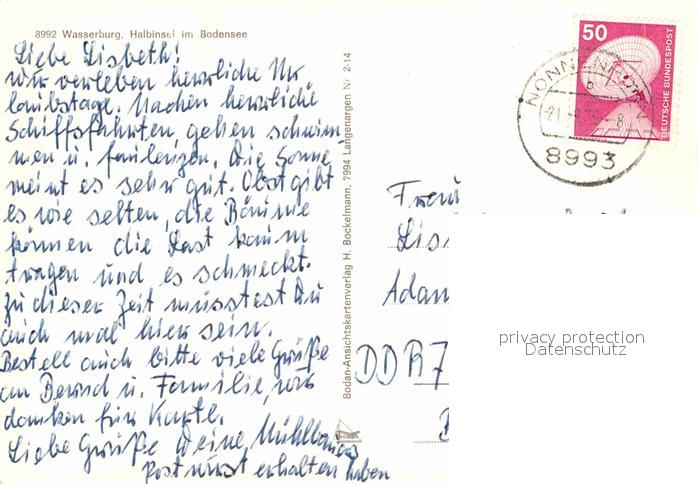 8992 Wasserburg, Halbinsel im Bodensee
Liebe Lisbeth!
wir verleben herrliche Ur
laubstage. Machen herrliche
Schiffsfahrten, gehen schwim
men u. faulenzen. Die Sonne
meint es sehr gut. Obst gibt
es wie selten, die Bäume
können die Last kaum
tragen und es schmeckt.
Zu dieser Zeit müsstest Du
auch mal hier sein.
Bestell auch bitte viele Grüße
an Bernd u. Familie, wir
danken für Karte.
Liebe Grüße Deine Mühlbauers
Post erhalten haben
Bodan-Ansichtskartenverlag H. Bockelmann, 7994 Langenargen Nr. 2-14
bodan
50
DEUTSCHE BUNDESPOST
NONNENHORN
b
21.
8993
Frau
Lis
Adam
DDR 7
privacy protection
Datenschutz